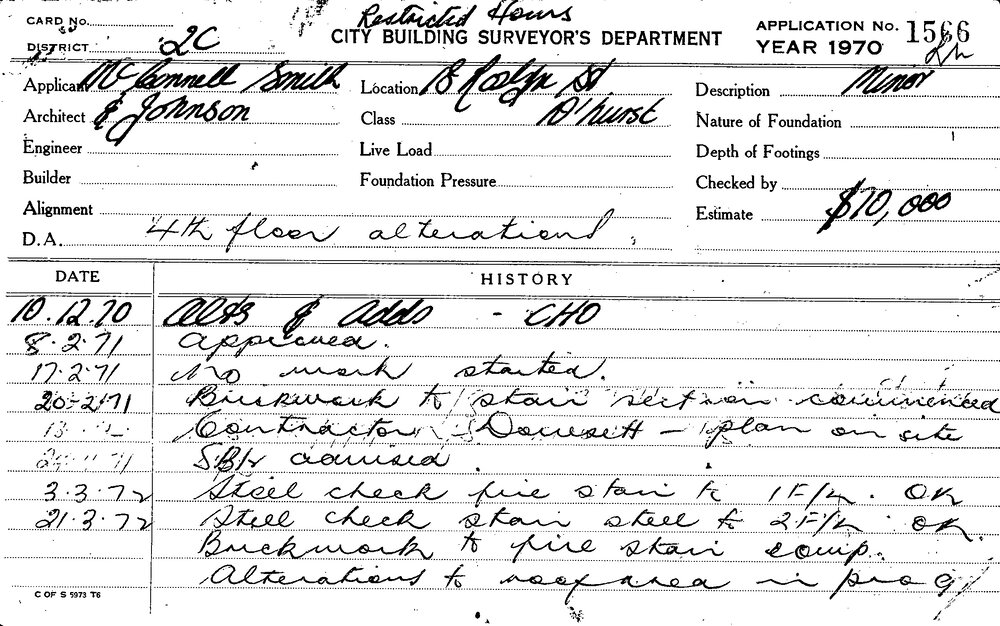 Restricted Hours
CARD No.
CITY BUILDING SURVEYOR'S DEPARTMENT
APPLICATION No. 1566
DISTRICT 2C
YEAR 1970
Applicant McConnell Smith
Location 8 Roslyn St
Description Minor
Architect & Johnson
Class D'hurst
Nature of Foundation
Engineer
Live Load
Depth of Footings
Builder
Foundation Pressure
Checked by
Alignment
Estimate $70,000
D.A. 4th floor alterations
DATE HISTORY
10.12.70 Alts & Adds - CHO
8.2.71 Approved.
17.2.71 No work started.
Brickwork to stair section commenced
Contractor Dowsett - plan on site
advised.
3.3.72 Steel check fire stair to 1F/L. OK
21.3.72 Steel check stair steel to 2F/L. OK.
Brickwork to fire stair comp.
Alterations to roof area in prog
C OF S 5973 T6